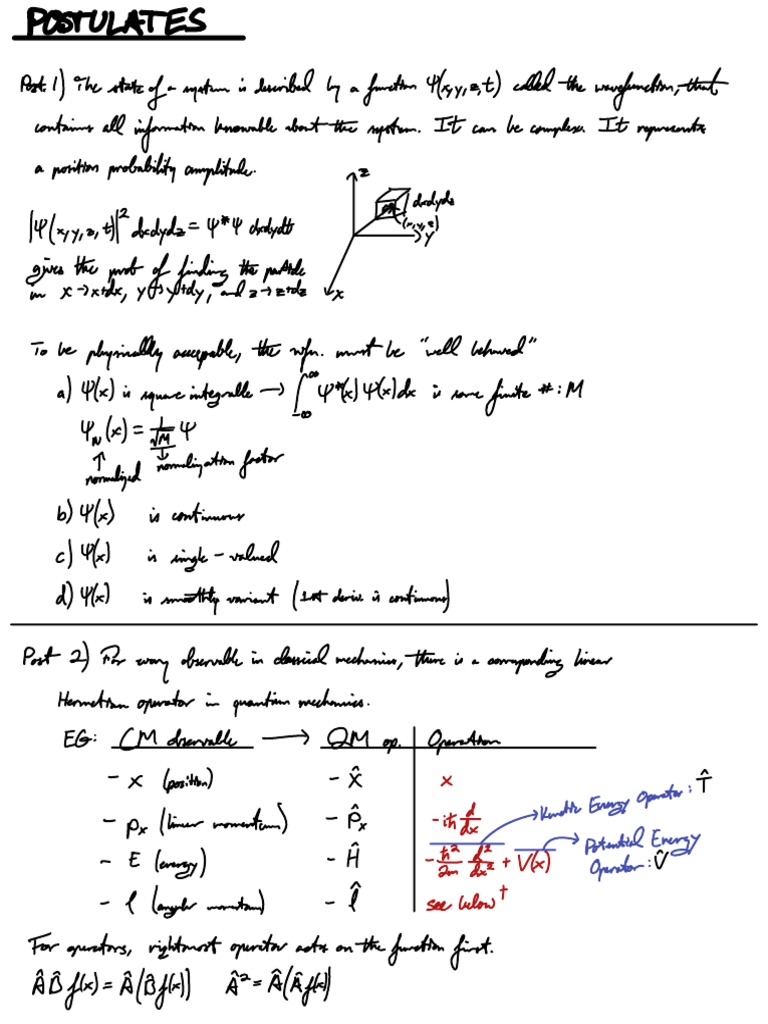 POSTULATES
Post. 1) The state of a system is described by a function Ψ(x,y,z,t) called the wavefunction, that
contains all information knowable about the system. It can be complex. It represents
a position probability amplitude.
z
dxdydz
(x,y,z)
y
x
|Ψ(x,y,z,t)|² dxdydz = Ψ*Ψ dxdydz
gives the prob of finding the particle
in x→x+dx, y→y+dy, and z→z+dz
To be physically acceptable, the wfn. must be "well behaved"
a) Ψ(x) is square integrable → ∫_{-∞}^{+∞} Ψ*(x)Ψ(x)dx is some finite #: M
Ψ_N(x) = 1/√M Ψ
↑ normalized
↓ normalization factor
b) Ψ(x) is continuous
c) Ψ(x) is single-valued
d) Ψ(x) is smoothly variant (1st deriv. is continuous)
Post 2) For every observable in classical mechanics, there is a corresponding linear
Hermetian operator in quantum mechanics.
EG: CM observable → QM op. Operation
- x (position) - X̂ x
- px (linear momentum) - P̂x -iħ d/dx
→ Kinetic Energy Operator: T̂
- E (energy) - Ĥ -ħ²/2m d²/dx² + V(x)
→ Potential Energy
Operator: V̂
- l (angular momentum) - l̂ see below†
For operators, rightmost operator acts on the function first.
ÂB̂f(x) = Â(B̂f(x)) Â² = Â(Âf(x))